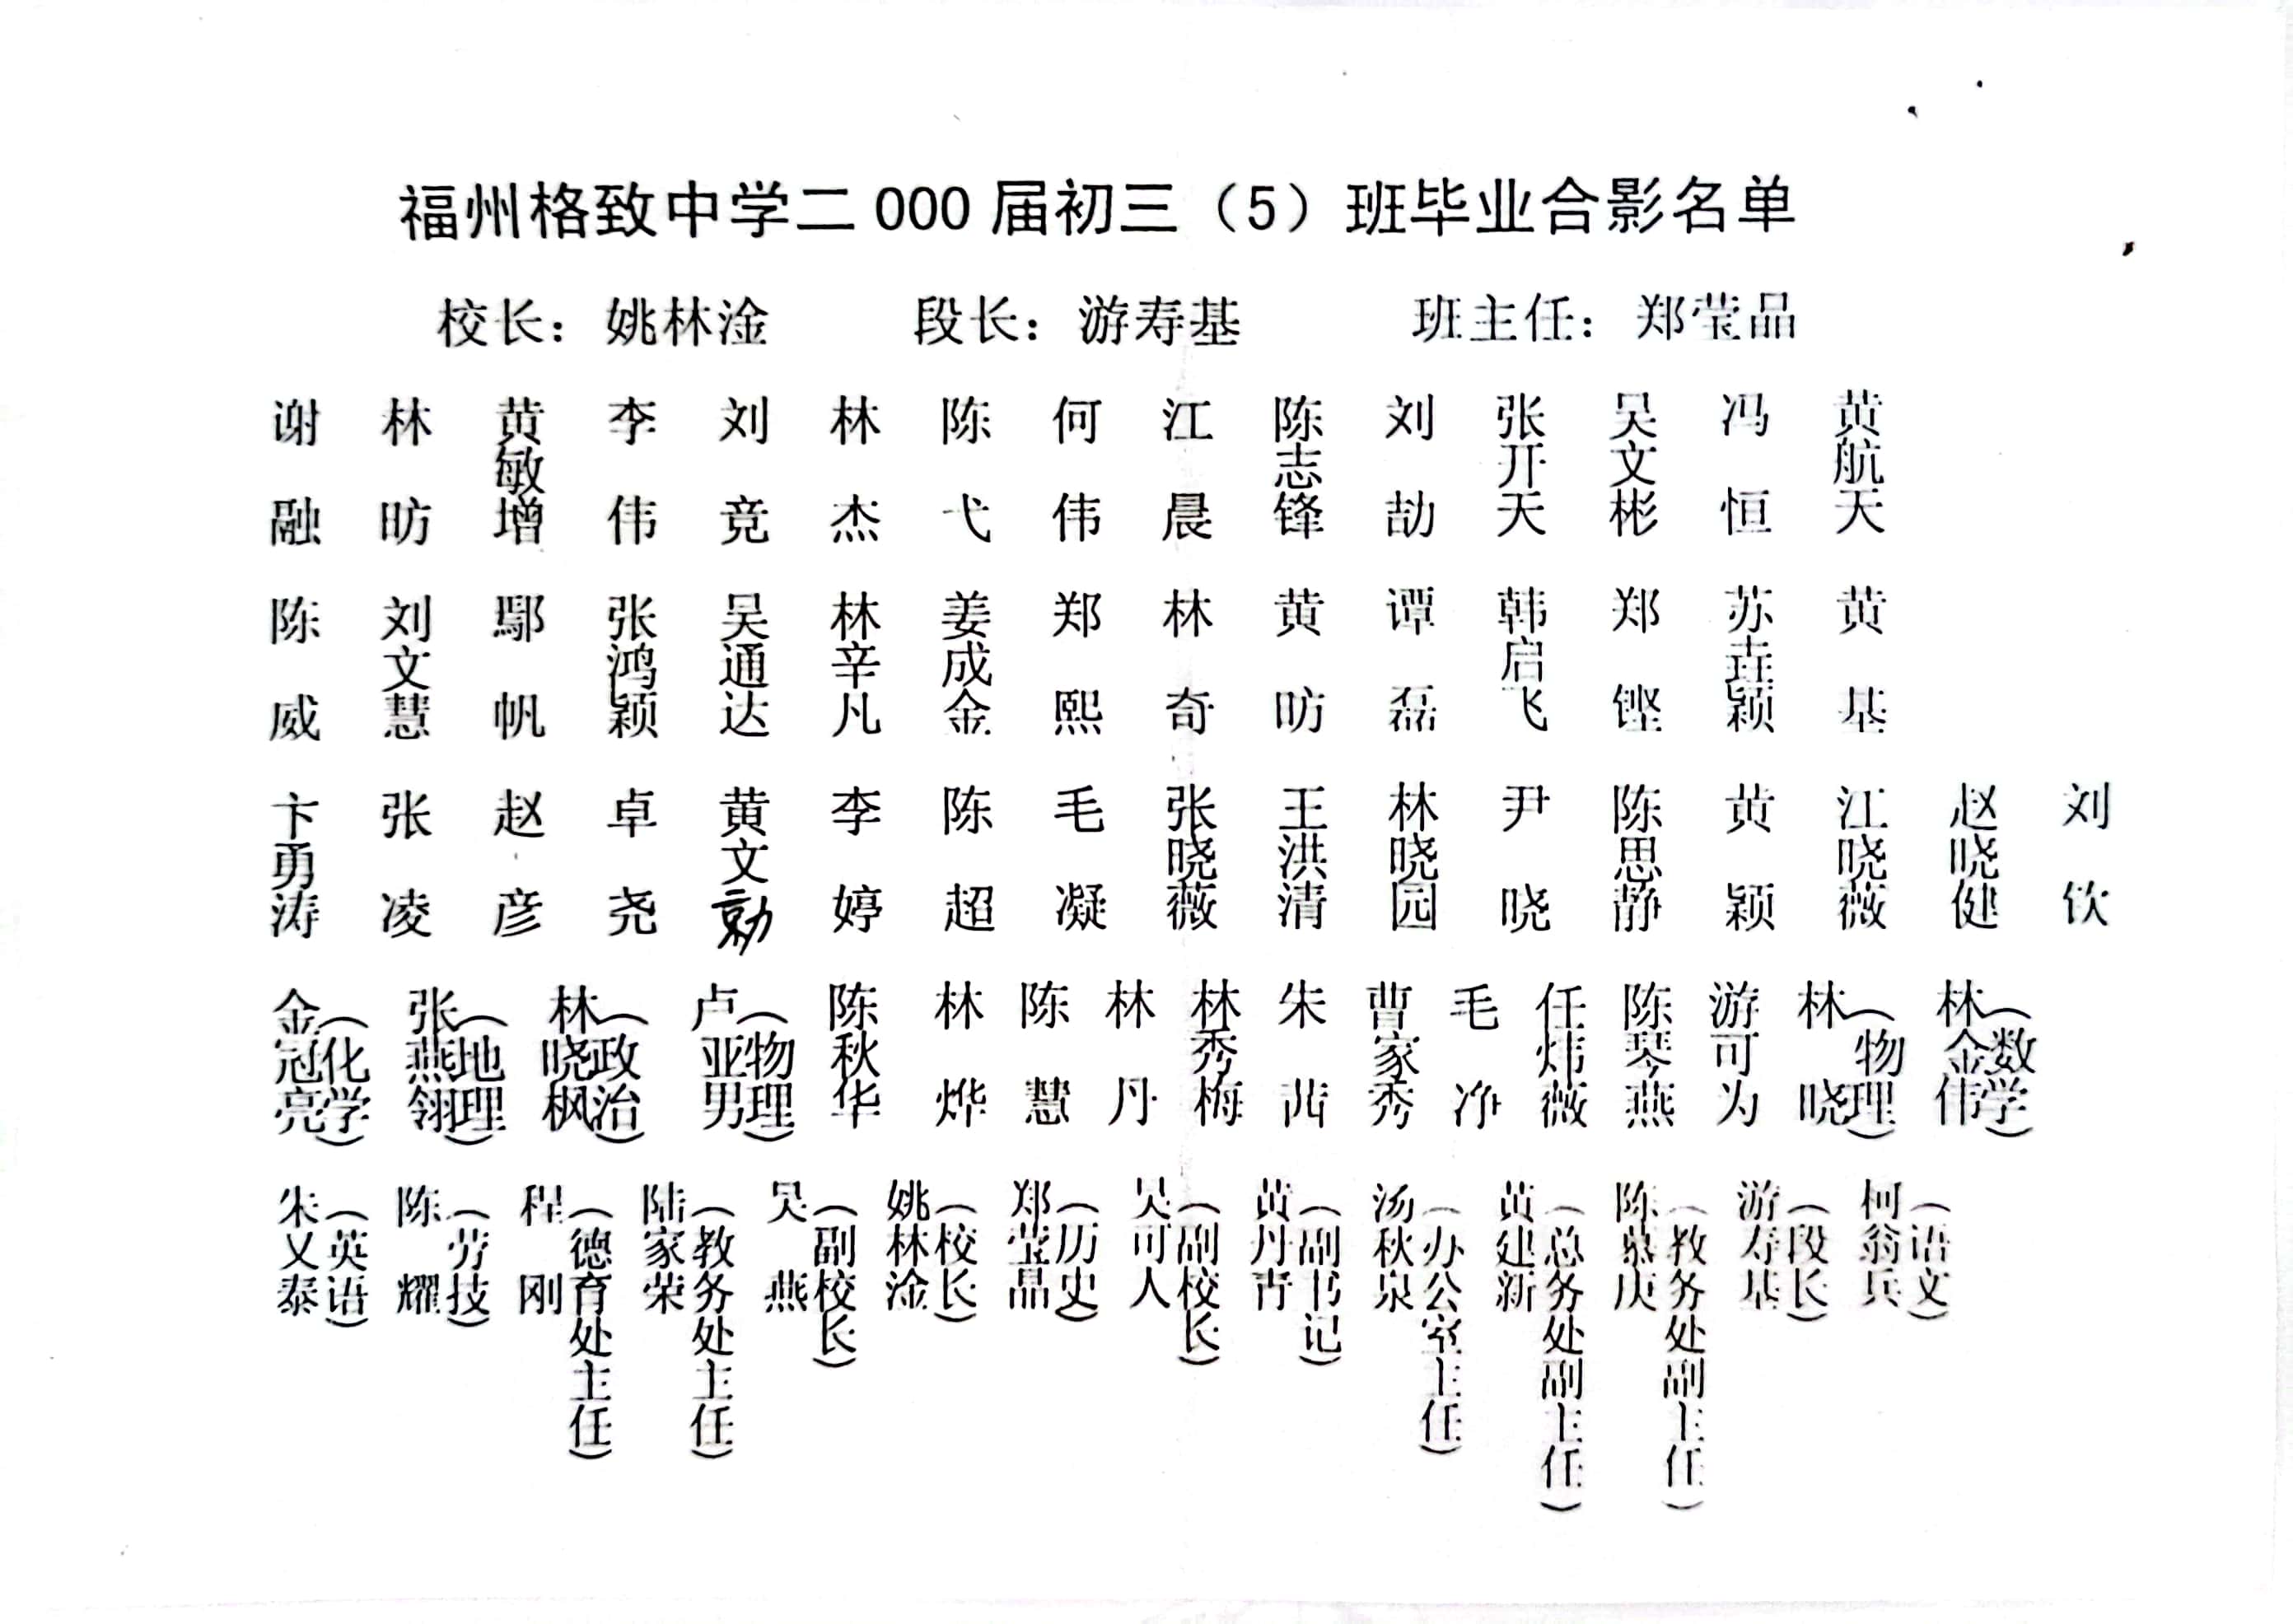 福州格致中学二000届初三（5）班毕业合影名单
校长：姚林淦 段长：游寿基 班主任：郑莹品
谢融 林昉 黄敏增 李伟 刘竞 林杰 陈弋 何伟 江晨 陈志锋 刘劼 张开天 吴文彬 冯恒 黄航天
陈威 刘文慧 鄢帆 张鸿颖 吴通达 林辛凡 姜成金 郑熙 林奇 黄昉 谭磊 韩启飞 郑铿 苏垚颖 黄基
卞勇涛 张凌 赵彦 卓尧 黄文勍 李婷 陈超 毛凝 张晓薇 王洪清 林晓园 尹晓 陈思静 黄颖 江晓薇 赵晓健 刘钦
金冠亮（化学） 张燕翎（地理） 林晓枫（政治） 卢亚男（物理） 陈秋华 林烨 陈慧 林丹 林秀梅 朱茜 曹家秀 毛净 任炜薇 陈琴燕 游可为 林晓（物理） 林金伟（数学）
朱义泰（英语） 陈耀（劳技） 程刚（德育处主任） 陆家荣（教务处主任） 吴燕（副校长） 姚林淦（校长） 郑莹品（历史） 吴可人（副校长） 黄丹青（副书记） 汤秋泉（办公室主任） 黄建新（总务处副主任） 陈慕庚（教务处副主任） 游寿基（段长） 柯翁兵（语文）